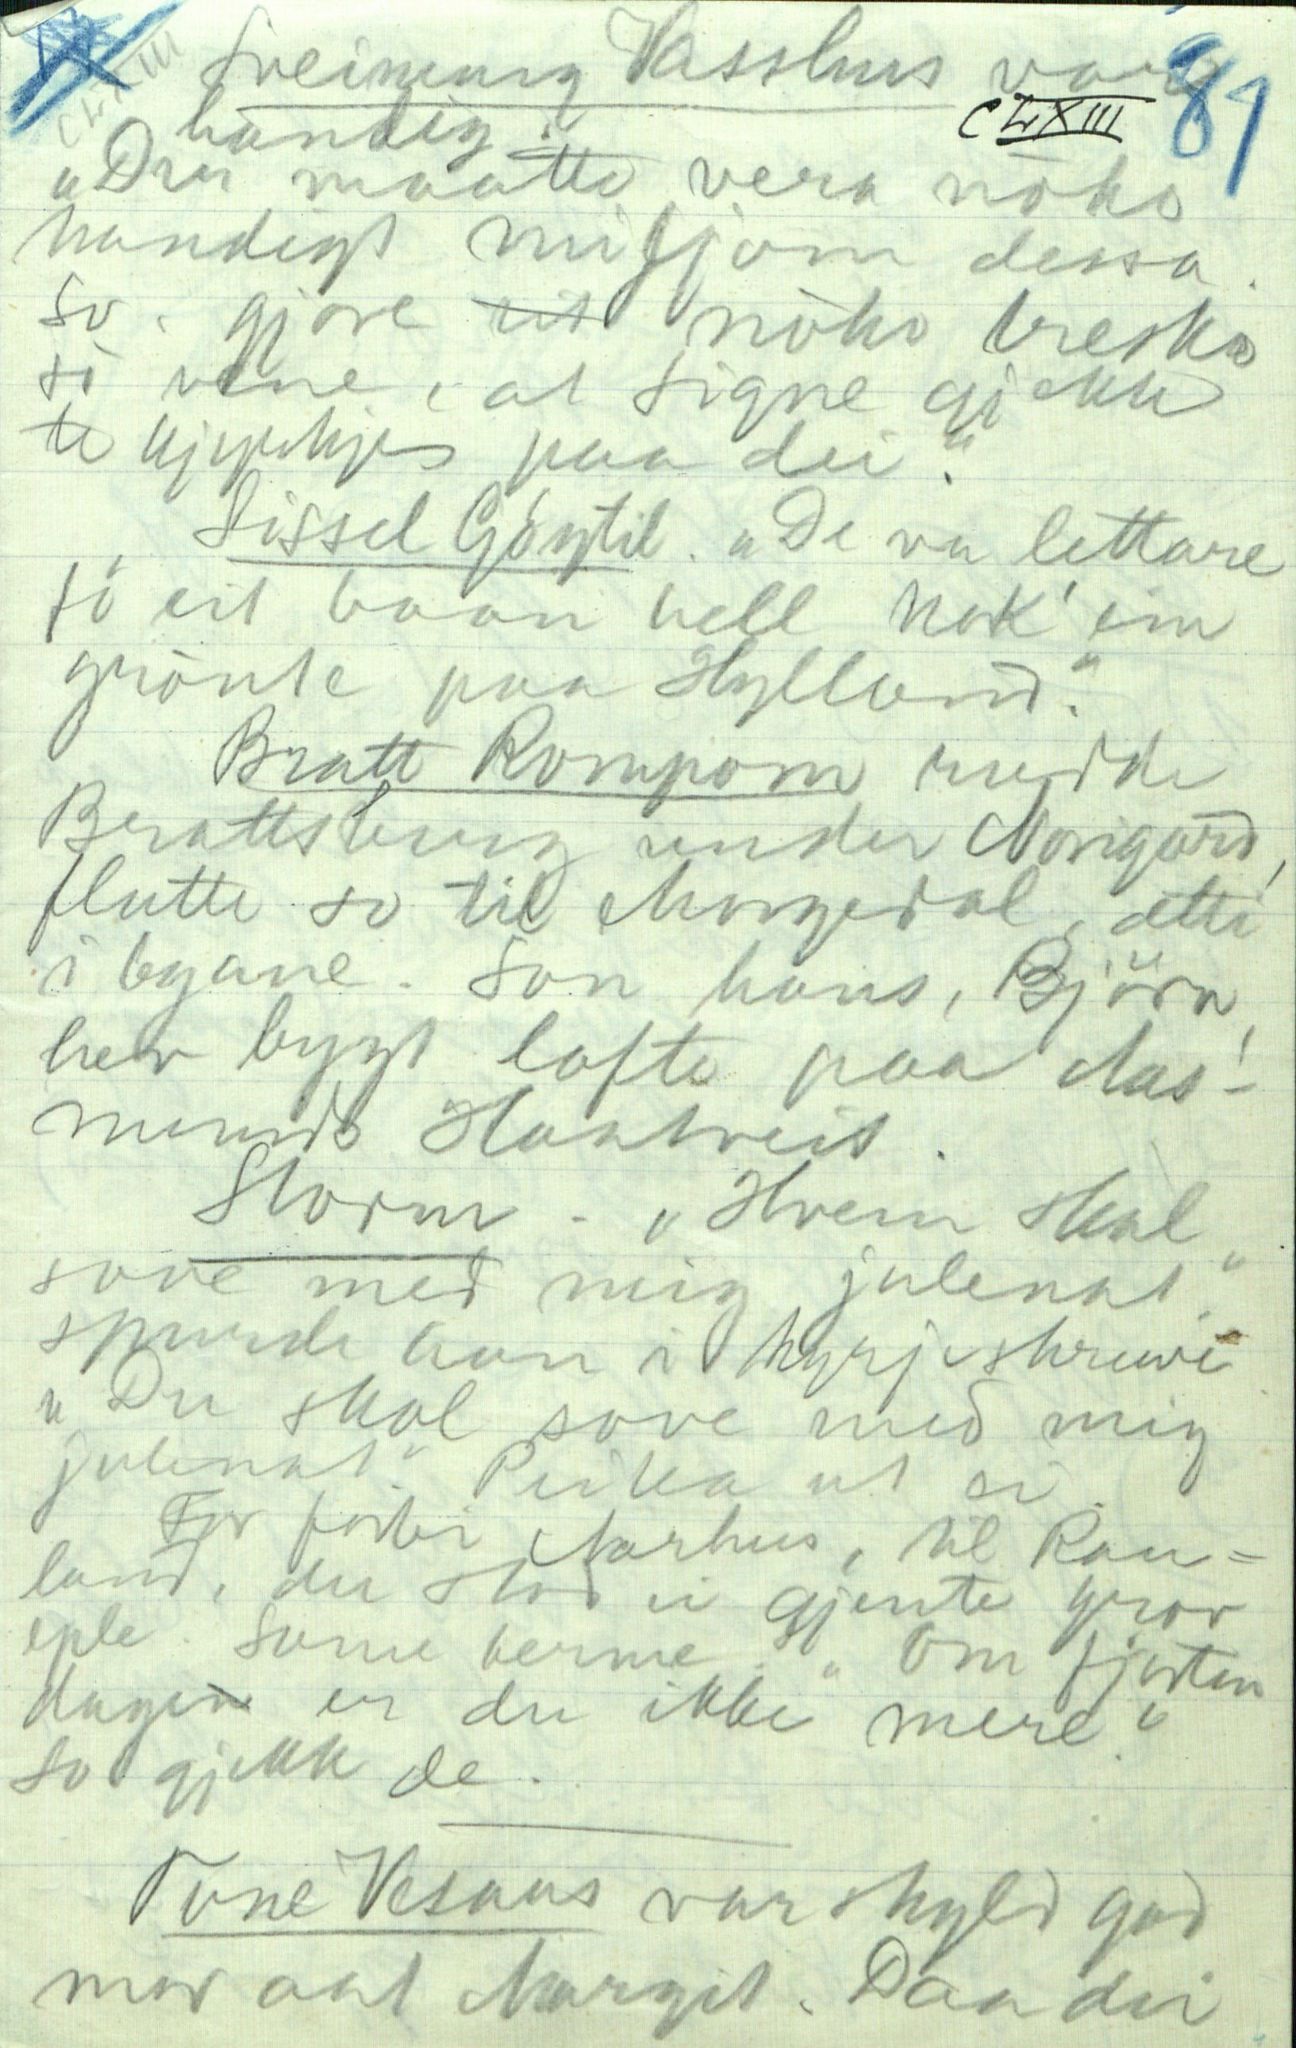 Sveinung Vasshus var
81
CLXIII
handig:
"Du maatte vera nöko
handigt mi dessa.
So gjore nöko treska
so vene, at Signe gjekk
te paa dei."
Sissel Göytil. "De va lettare
fö eit baan hell nok' ein
grönte paa Hylland."
Bratt Rompom rudde
Brattsberg under Norigard,
flutte so til Morgedal, atti
i byane. Son hans, Björn,
hev bygt lofte paa Aas-
munds Haatveit.
Storm. "Hvem skal
sove med mig julenat"
spurde han i kyrjeskruvi
"Du skal sove med mig
julenat." Peika ut ei.
For forbi Aarhus, til Rau=
land, der stod ei gjente grov
eple. Same kerme. "Om fjorten
dager er du ikke mere."
So gjekk de.
Tone Vesaas var skyld god
mor aat Margit. Daa dei